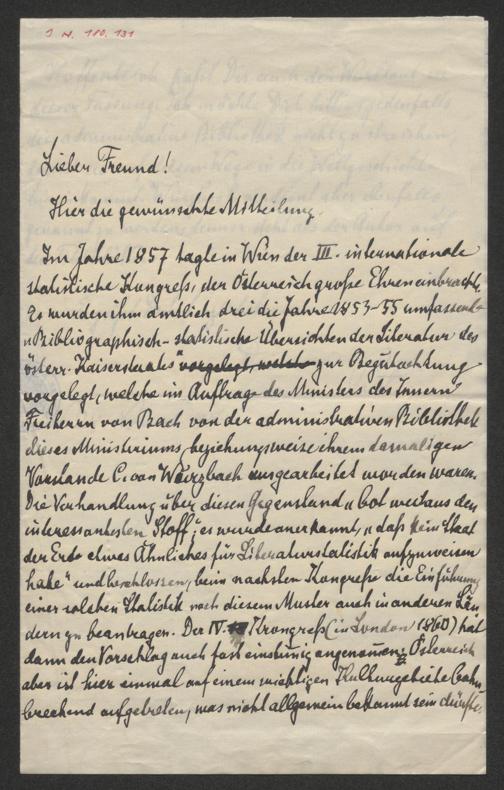 I. N. 180.131
Lieber Freund!
Hier die gewünschte Mittheilung.
Im Jahre 1857 tagte in Wien der III. internationale
statistische Kongreß, der Österreich große Ehren einbrachte.
Es wurden ihm amtlich drei die Jahre 1853-55 umfassende
"Bibliographisch-statistische Übersichten der Literatur des
österr. Kaiserstaates" vorgelegt, welche zur Begutachtung
vorgelegt, welche im Auftrage des Ministers des Innern
Freiherrn von Bach von der administrativen Bibliothek
dieses Ministeriums, beziehungsweise ihrem damaligen
Vorstande C. von Wurzbach ausgearbeitet worden waren.
Die Verhandlung über diesen Gegenstand „bot weitaus den
interessantesten Stoff"; es wurde anerkannt, „daß kein Staat
der Erde etwas Ähnliches für Literaturstatistik aufzuweisen
habe" und beschlossen, beim nächsten Kongreße die Einführung
einer solchen Statistik nach diesem Muster auch in anderen Län
dern zu beantragen. Der IV. Kongreß (in London 1860) hat
dann den Vorschlag auch fast einstimmig angenommen. Österreich
aber ist hier einmal auf einem wichtigen Kulturgebiete bahn
brechend aufgetreten, was nicht allgemein bekannt sein dürfte.